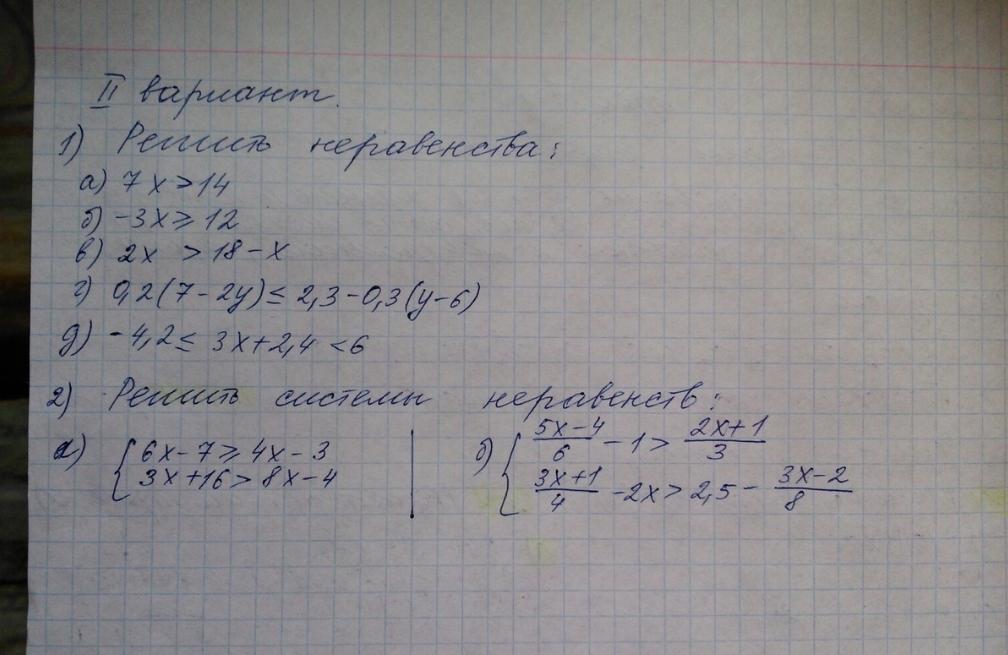 II вариант.
1) Решить неравенства:
а) 7x > 14
б) -3x ≥ 12
в) 2x > 18 - x
г) 0,2(7 - 2y) ≤ 2,3 - 0,3(y - 6)
д) -4,2 ≤ 3x + 2,4 < 6
2) Решить системы неравенств:
а) { 6x - 7 ≥ 4x - 3
3x + 16 > 8x - 4
б) { (5x - 4)/6 - 1 > (2x + 1)/3
(3x + 1)/4 - 2x > 2,5 - (3x - 2)/8